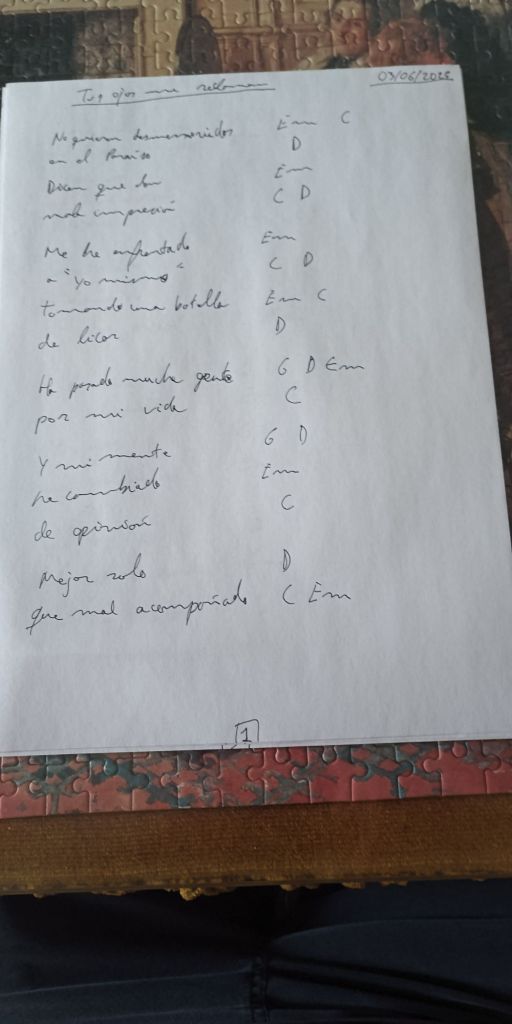 Tus ojos me reclaman 03/06/2025
No quieren desmemoriados Em C
en el Paraíso D
Dicen que doy Em
mala impresión C D
Me he enfrentado Em
a "Yo mismo" C D
tomando una botella Em C
de licor D
Ha pasado mucha gente G D Em
por mi vida C
Y mi mente G D
ha cambiado Em
de opinión C
Mejor solo D
que mal acompañado C Em
1